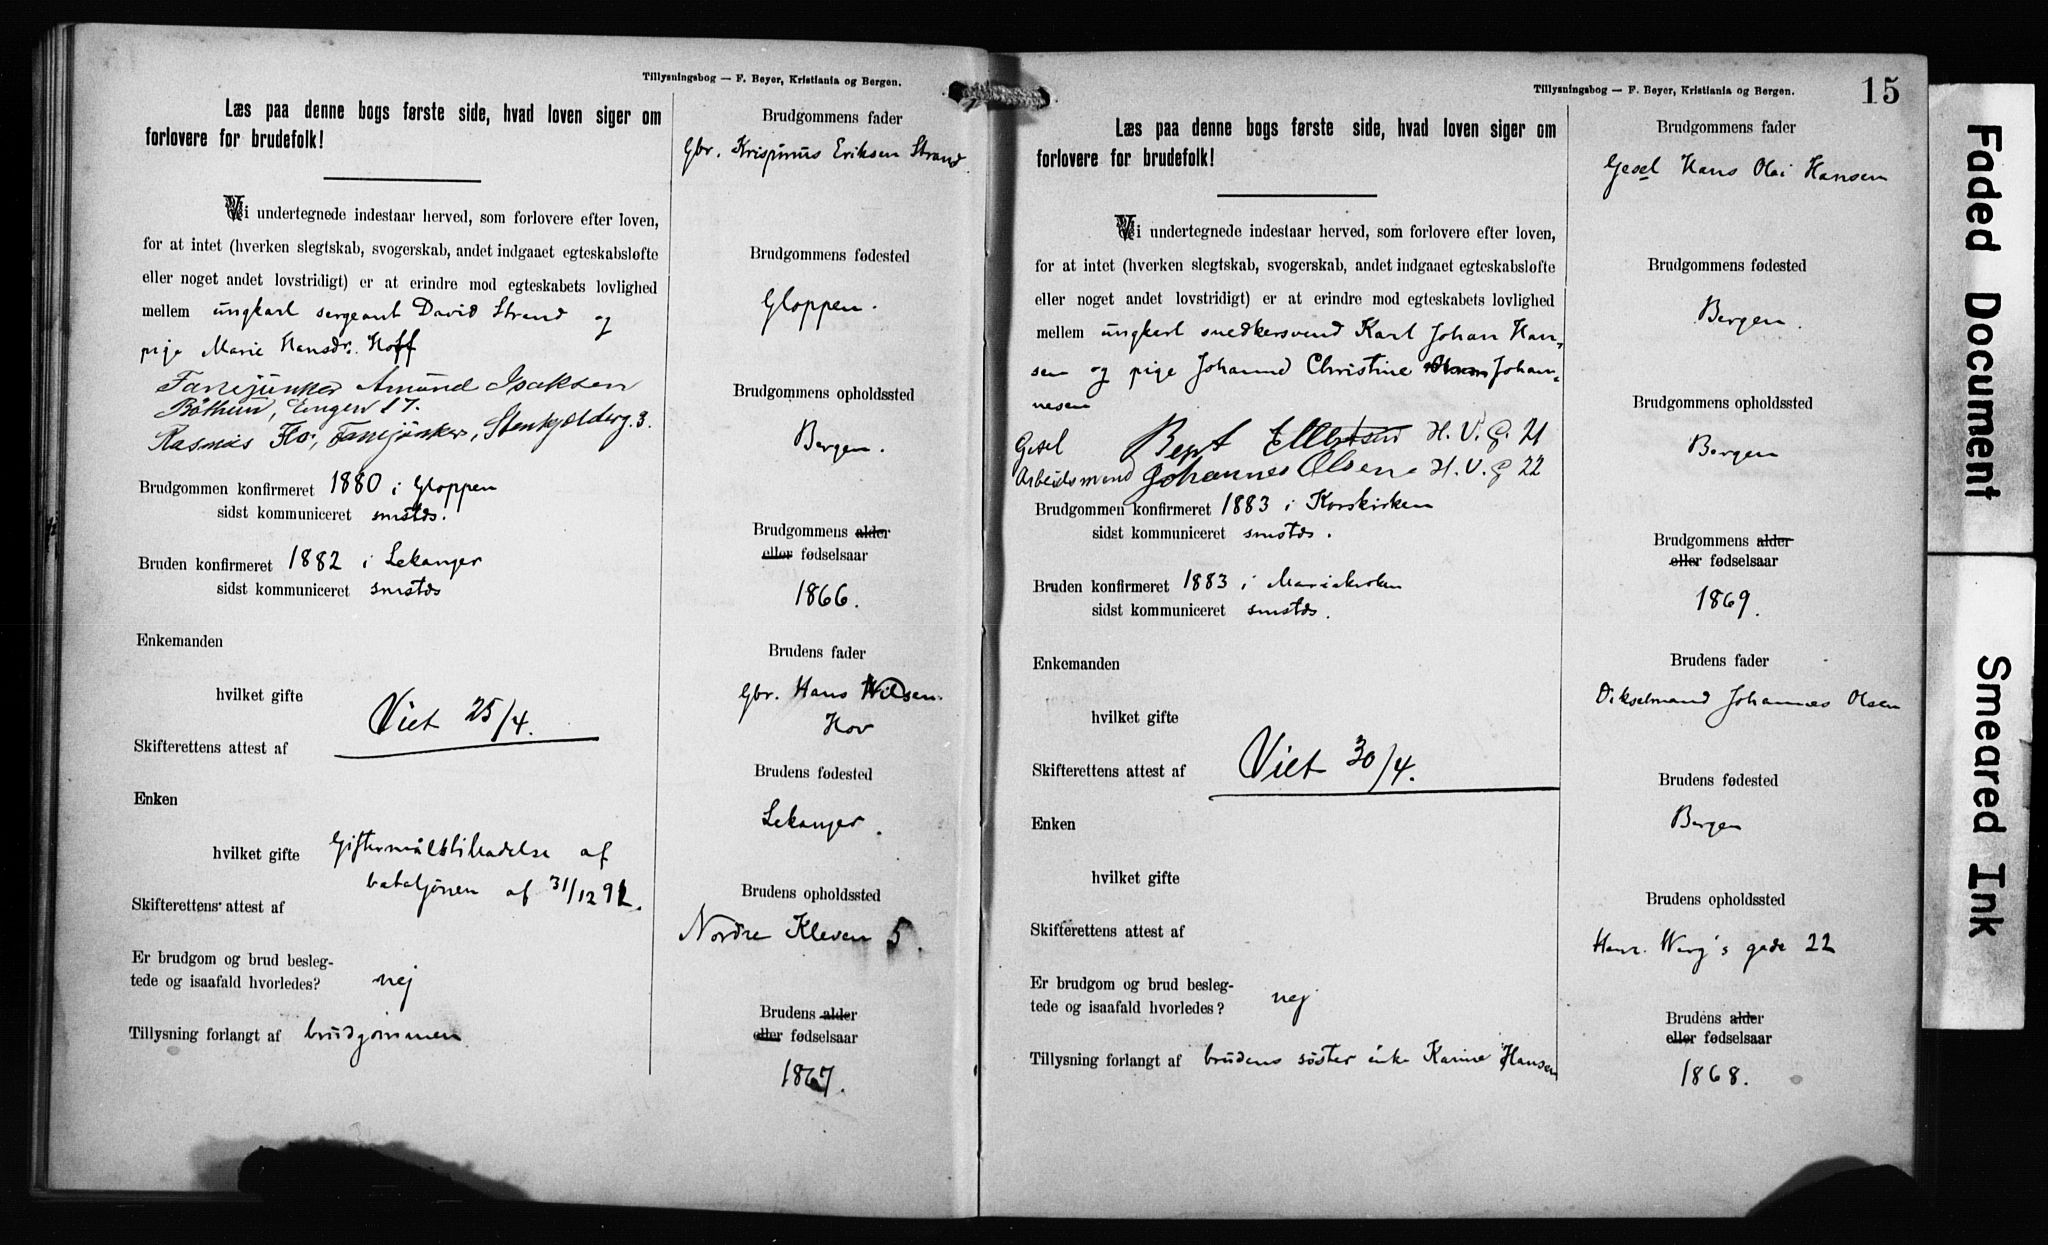 Tillysningsbog — F. Beyer, Kristiania og Bergen.
Læs paa denne bogs første side, hvad loven siger om
forlovere for brudefolk!
Vi undertegnede indestaar herved, som forlovere efter loven,
for at intet (hverken slegtskab, svogerskab, andet indgaaet egteskabsløfte
eller noget andet lovstridigt) er at erindre mod egteskabets lovlighed
mellem ungkarl sergeant David Strand og
pige Marie Hansdr. Hoff
Fanejunker Amund Isaksen
Bøthun, Engen 17.
Rasmus Flo, Fanejunker, Stenkjelderg. 3.
Brudgommen konfirmeret 1880 i Gloppen
sidst kommuniceret smstds.
Bruden konfirmeret 1882 i Lekanger
sidst kommuniceret smstds
Enkemanden
hvilket gifte
Viet 25/4.
Skifterettens attest af
Enken
hvilket gifte Giftermålstilladelse af
bataljonen af 31/12 92.
Skifterettens attest af
Er brudgom og brud beslegtede og isaafald hvorledes? nej
Tillysning forlangt af brudgommen
Brudgommens fader
Gbr. Krispinus Eriksen Strand.
Brudgommens fødested
Gloppen.
Brudgommens opholdssted
Bergen.
Brudgommens alder
eller fødselsaar
1866.
Brudens fader
Gbr. Hans Nilsen
Hov
Brudens fødested
Lekanger.
Brudens opholdssted
Nordre Kleven 5.
Brudens alder
eller fødselsaar
1867.
Tillysningsbog — F. Beyer, Kristiania og Bergen.
15
Læs paa denne bogs første side, hvad loven siger om
forlovere for brudefolk!
Vi undertegnede indestaar herved, som forlovere efter loven,
for at intet (hverken slegtskab, svogerskab, andet indgaaet egteskabsløfte
eller noget andet lovstridigt) er at erindre mod egteskabets lovlighed
mellem ungkarl snedkersvend Karl Johan Han-
sen og pige Johanne Christine Johan-
nesen
Gesel Bept Ellertsen H. V. G. 21
Arbeidsmand Johannes Olsen H. V. G 22
Brudgommen konfirmeret 1883 i Korskirken
sidst kommuniceret smstds.
Bruden konfirmeret 1883 i Mariakirken
sidst kommuniceret smstds.
Enkemanden
hvilket gifte
Viet 30/4.
Skifterettens attest af
Enken
hvilket gifte
Skifterettens attest af
Er brudgom og brud besleg-
tede og isaafald hvorledes? nej
Tillysning forlangt af brudens søster enke Karine Hansen
Brudgommens fader
Gesel Hans Olai Hansen
Brudgommens fødested
Bergen.
Brudgommens opholdssted
Bergen
Brudgommens alder
eller fødselsaar
1869.
Brudens fader
Dikselmand Johannes Olsen
Brudens fødested
Bergen
Brudens opholdssted
Henr. Wergs gade 22
Brudens alder
eller fødselsaar
1868.
Faded Document
Smeared Ink